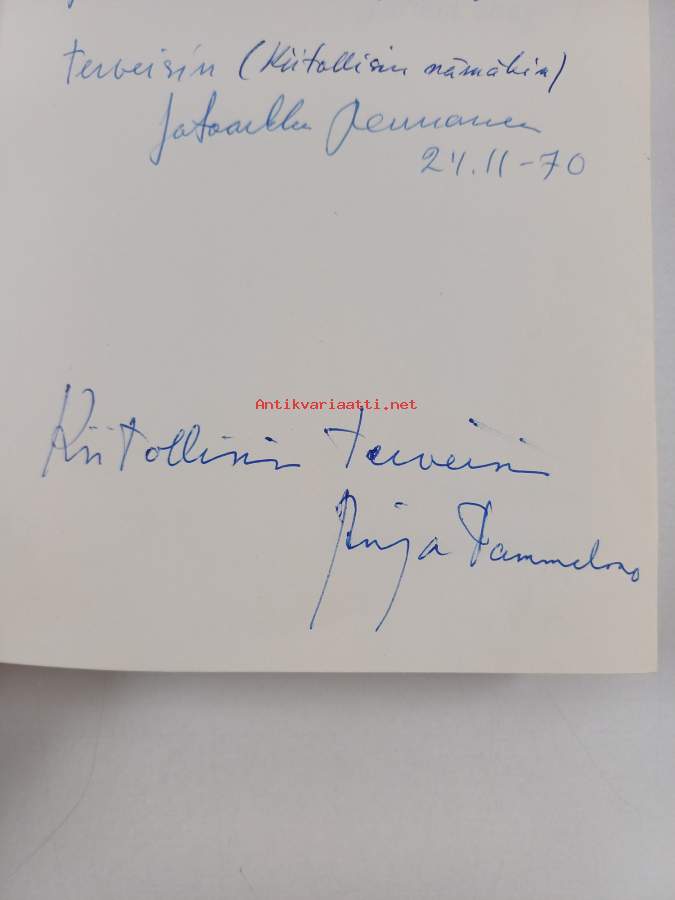 terveisin (Kiitollisin nämäkin)
Jotaarkka Pennanen
24.11-70
Antikvariaatti.net
Kiitollisin terveisin
Pirjo Tammelono